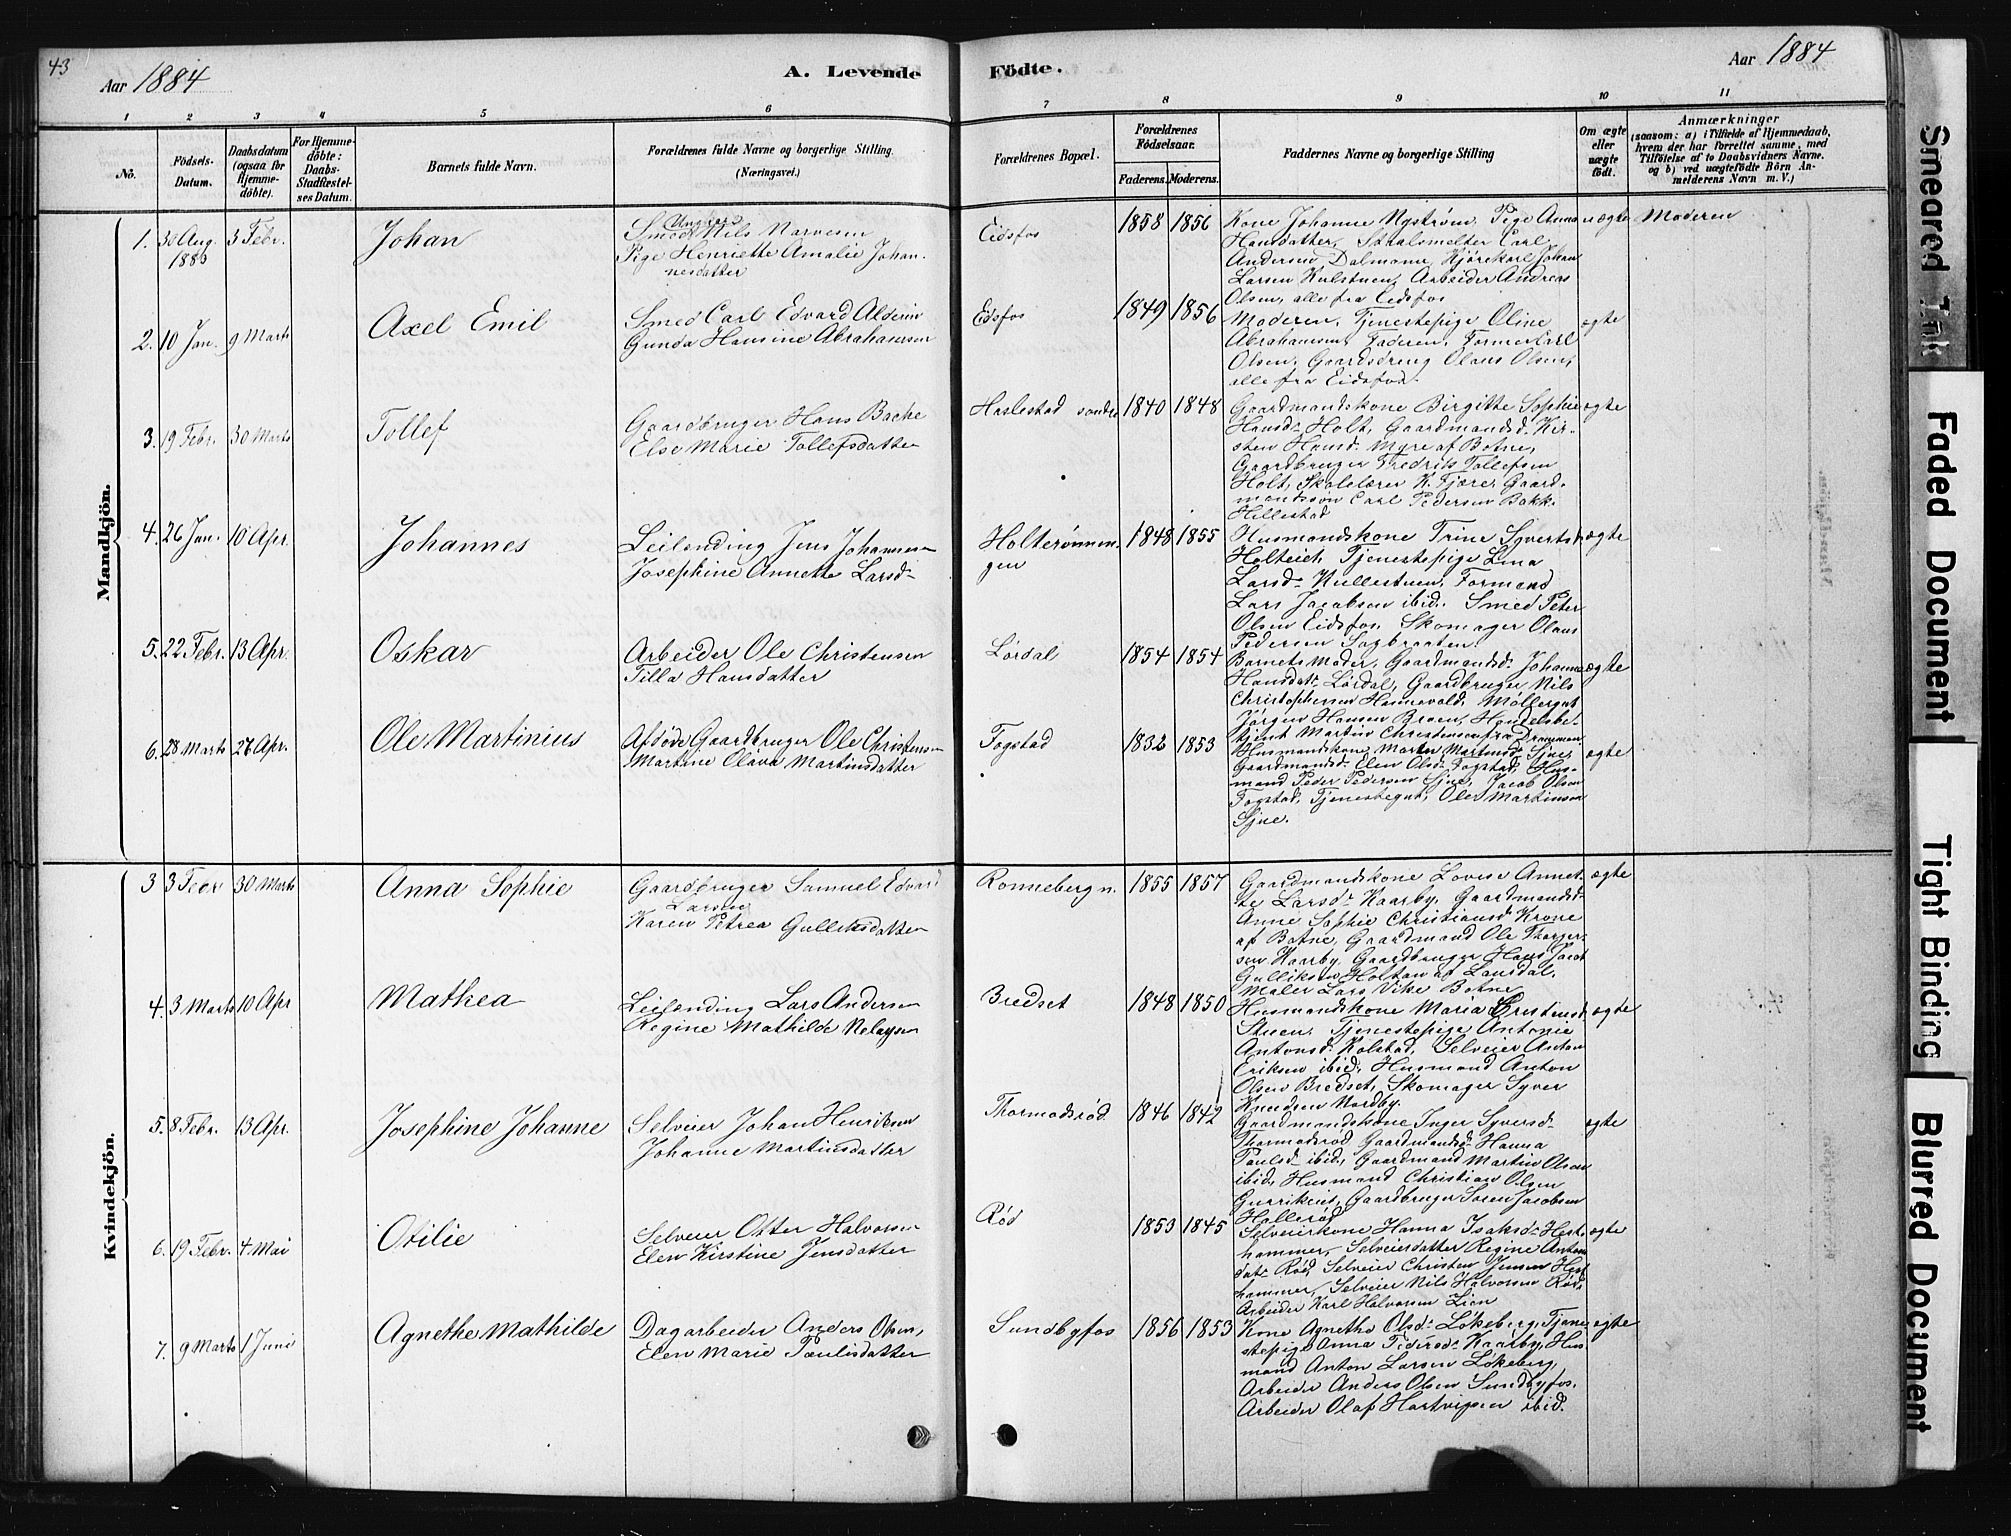 43
Aar 1884
A. Levende
Födte.
Aar 1884
1 2 3 4 5 6 7 8 9 10 11
No.
Födsels-Datum.
Daabsdatum (ogsaa för Hjemmedöbte).
For Hjemmedöbte: Daabs-Stadfæstelses Datum.
Barnets fulde Navn.
Forældrenes fulde Navne og borgerlige Stilling
(Næringsvei.)
Forældrenes Bopæl.
Forældrenes Födselsaar.
Faderens. Moderens.
Faddernes Navne og borgerlige Stilling
Om ægte eller uægte födt.
Anmærkninger
(saasom: a) i Tilfælde af Hjemmedaab,
hvem der har forrettet samme, med
Tilföielse af to Daabsvidners Navne.
og b) ved uægtefödte Börn Anmelderens Navn m. V.)
Mandkjön.
1. 30 Aug. 1883
3 Febr.
Johan
Ungkar
Smed Nils Narvesen
Pige Henriette Amalie Johannesdatter
Eidsfos
1858 1856
Kone Johanne Nystrøm, Pige Anna
Hansdatter, Staalsmelter Carl
Andersen Dalmann, Kjørekarl Johan
Larsen Kulstuen, Arbeider Andreas
Olsen, alle fra Eidsfos
uægte
Moderen
2. 10 Jan. 9 Marts
Axel Emil
Smed Carl Edvard Alderin
Gunda Hansine Abrahamsen
Eidsfos
1849 1856
Moderen, Tjenestepige Oline
Abrahamsen, Faderen, Former Carl
Olsen, Gaardsdreng Olaus Olsen,
alle fra Eidsfos.
ægte
3. 19 Febr. 30 Marts
Tollef
Gaardbruger Hans Bache
Else Marie Tollefsdatter
Haslestad søndre
1840 1848
Gaardmandskone Birgitte Sophie
Hansd. Holt, Gaardmandsd. Kirsten
Hansd. Myre af Botne,
Gaardbruger Fredrik Tollefsen
Holt, Skolelærer K. Fjære, Gaardmandssøn
Carl Pedersen Bakk.
Hillestad
ægte
4. 26 Jan. 10 Apr.
Johannes
Leilending Jens Johansen
Josephine Annette Larsd.
Holterønningen
1848 1855
Husmandskone Trine Syvertsd.
Holteiet, Tjenestepige Lina
Larsd. Kullestuen, Formand
Lars Jacobsen ibid. Smed Peter
Olsen Eidsfos, Skomager Olaus
Pedersen Sagbraaten.
ægte
5. 22 Febr. 13 Apr.
Oskar
Arbeider Ole Christensen
Tilla Hansdatter
Lørdal
1854 1854
Barnets Moder, Gaardmandsd. Johanne
Hansdat. Lørdal, Gaardbruger Nils
Christophersen Hennevold, Møllergut
Jørgen Hansen Braen, Handelsbetjent
Martin Christensen fra Drammen
ægte
6. 28 Marts 27 Apr.
Ole Martinius
Afdøde Gaardbruger Ole Christensen
Martine Olava Martinsdatter
Fogstad
1832 1853
Husmandskone Marte Martinsd. Sjue
Gaardmandsd. Elen Olsd. Fogstad, Husmand
Peder Pedersen Sjue, Jacob Olsen
Fogstad, Tjenestegut, Ole Martinsen
Sjue.
ægte
Kvindekjön.
3 3 Febr 30 Marts
Anna Sophie
Gaardbruger Samuel Edvard
Larsen
Karen Petrea Gulliksdatter
Ronneberg n.
1855 1857
Gaardmandskone Lovise Annette
Larsd. Kaarby, Gaardmandsd.
Anne Sophie Christiansd. Krone
af Botne, Gaardmand Ole Thorgersen
Kaarby, Gaardbruger Hans Jacob
Gulliksen Holtan af Laurdal,
Maler Lars Vike Botne
ægte
4. 3 Marts 10 Apr
Mathea
Leilending Lars Andersen
Regine Mathilde
Bredset
1848 1850
Husmandskone Maria Cristensd.
Stuen, Tjenestepige Antonie
Antonsd. Kolstad, Selveier Anton
Eriksen ibid, Husmand Anton
Olsen Bredset, Skomager Syver
Knudsen Nordby.
ægte
5. 8 Febr. 13 Apr.
Josephine Johanne
Selveier Johan Henriksen
Johanne Martinsdatter
Thormodsrød
1846 1842
Gaardmandskone Inger Syversd.
Thormodsrød Gaardmandsd. Hanna
Paulsd. ibid, Gaardmand Martin Olsen
ibid, Husmand Christian Olsen
Gaardbruger Søren Jacobsen
Hallerød
ægte
6. 19 Febr. 4 Mai
Otilie
Selveier Otter Halvorsen
Elen Kirstine Jensdatter
Rød
1853 1845
Selveierkone Hanna Isaksd. Hesthammer,
Selveierdatter Regine Antondat.
Rød, Selveier Christen Jensen Hesthammer,
Selveier Nils Halvorsen Rød,
Arbeider Karl Halvorsen Lien
ægte
7. 9 Marts 1 Juni
Agnethe Mathilde
Dagarbeider Anders Olsen,
Elen Marie Paulsdatter
Sundbyfos
1856 1853
Kone Agnethe Olsd. Løkeberg, Tjenestepige
Anna Pedersd. Kaarby, Husmand
Anton Larsen Løkeberg,
Arbeider Anders Olsen Sundbyfos.
Arbeider Olaf Hartvigsen ibid.
ægte
Smeared Ink
Faded Document
Tight Binding
Blurred Document